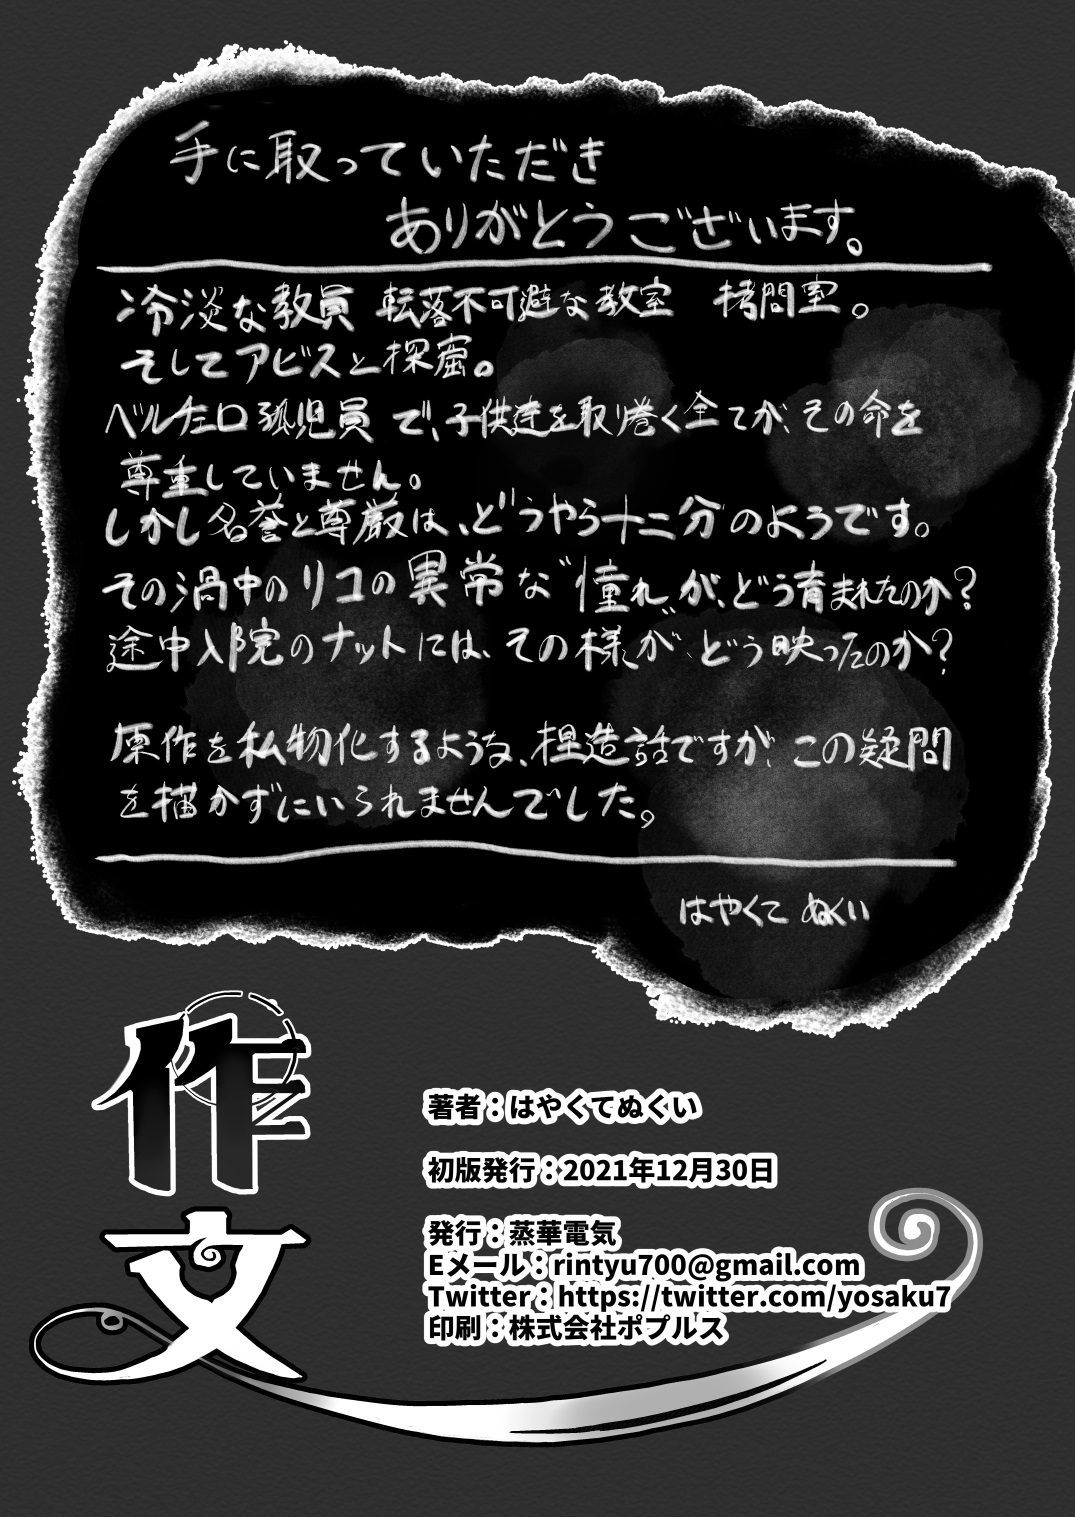 手に取っていただき
ありがとうございます。
冷淡な教員 転落不可避な教室 拷問室。
そしてアビスと探窟。
ベルチェロ孤児員で、子供達を取り巻く全てが、その命を
尊重していません。
しかし名誉と尊厳は、どうやら十二分のようです。
その渦中のリコの異常な"憧れ"が、どう育まれたのか?
途中入院のナットには、その様が、どう映ったのか?
原作を私物化するような、捏造話ですが、この疑問
を描かずにいられませんでした。
はやくて ぬくい
作文
著者:はやくてぬくい
初版発行:2021年12月30日
発行:蒸華電気
Eメール:rintyu700@gmail.com
Twitter:https://twitter.com/yosaku7
印刷:株式会社ポプルス